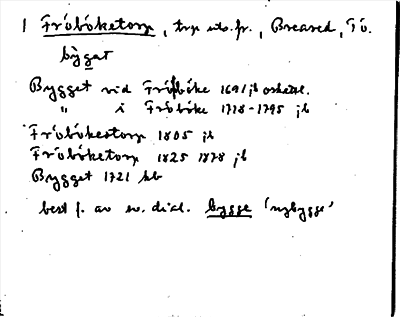 1 Fröböketorp, trp utb.fr., Breared, Tö.
bỳgat
Bygget vid Fröböke 1691 jb
" i Fröböke 1718-1795 jb
Fröbökestorp 1805 jb
Fröböketorp 1825 1878 jb
Bygget 1721 kb
best f. av sv. dial. bygge 'nybygge'